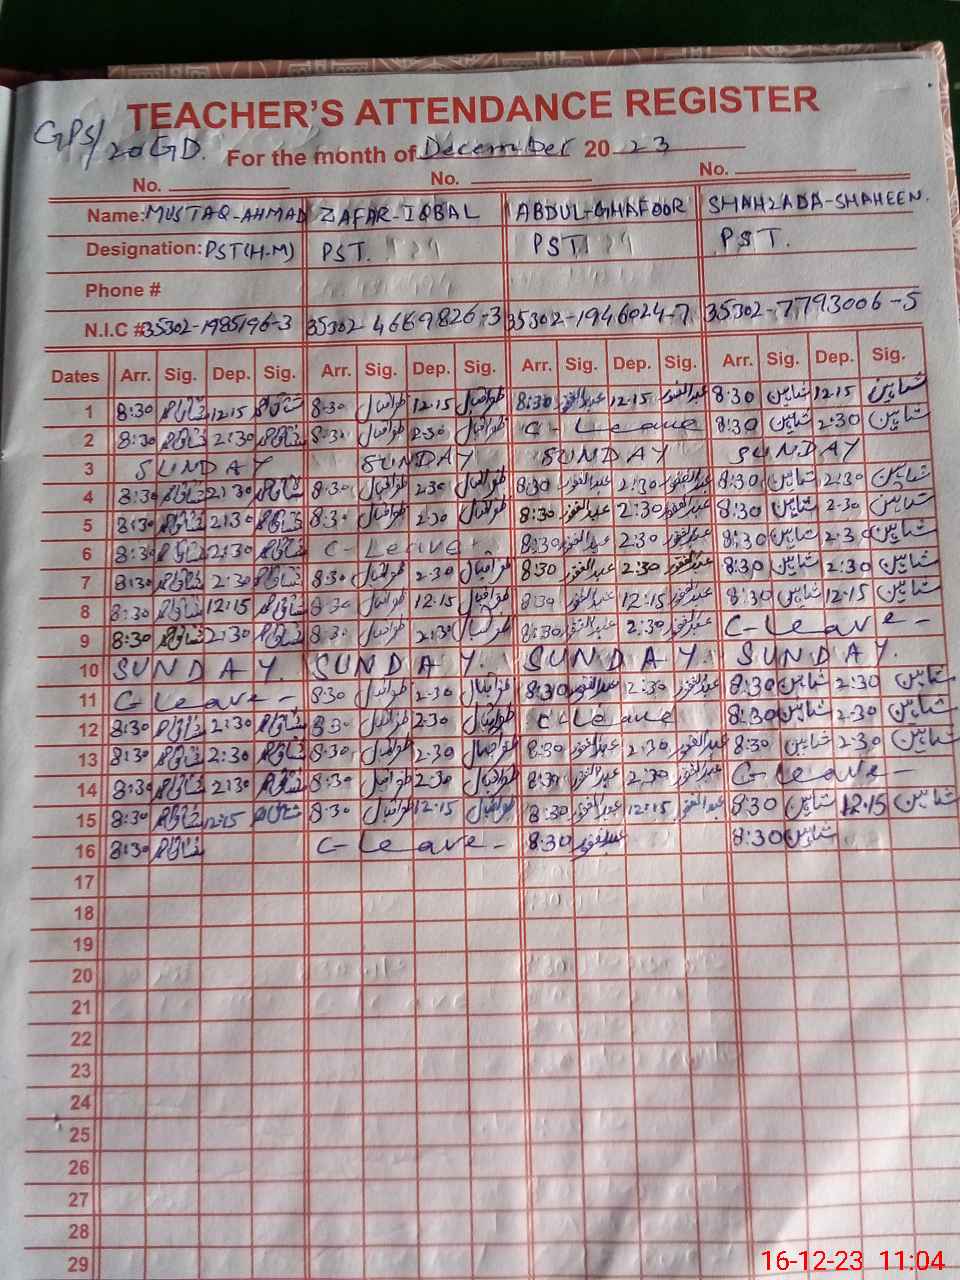 TEACHER'S ATTENDANCE REGISTER
GPS/20GD.
For the month of December 2023
No. No. No.
Name: MUSTAQ-AHMAD ZAFAR-IQBAL ABDUL-GHAFOOR SHAHZADA-SHAHEEN.
Designation: PST(H-M) PST. PST PST.
Phone #
N.I.C # 35302-1985196-3 35302-4669826-3 35302-1946024-7 35302-7793006-5
Dates Arr. Sig. Dep. Sig. Arr. Sig. Dep. Sig. Arr. Sig. Dep. Sig. Arr. Sig. Dep. Sig.
1 8:30 12:15 8:30 12:15 8:30 عبدالغفور 12:15 عبدالغفور 8:30 شاہین 12:15 شاہین
2 8:30 2:30 8:30 2:30 C-Leave 8:30 شاہین 2:30 شاہین
3 SUNDAY SUNDAY SUNDAY SUNDAY
4 8:30 2:30 8:30 2:30 8:30 عبدالغفور 2:30 عبدالغفور 8:30 شاہین 2:30 شاہین
5 8:30 2:30 8:30 2:30 8:30 عبدالغفور 2:30 عبدالغفور 8:30 شاہین 2:30 شاہین
6 8:30 2:30 C-Leave- 8:30 عبدالغفور 2:30 عبدالغفور 8:30 شاہین 2:30 شاہین
7 8:30 2:30 8:30 2:30 8:30 عبدالغفور 2:30 عبدالغفور 8:30 شاہین 2:30 شاہین
8 8:30 12:15 8:30 12:15 8:30 عبدالغفور 12:15 عبدالغفور 8:30 شاہین 12:15 شاہین
9 8:30 2:30 8:30 2:30 8:30 عبدالغفور 2:30 عبدالغفور C-Leave-
10 SUNDAY. SUNDAY. SUNDAY. SUNDAY.
11 C-Leave- 8:30 2:30 8:30 عبدالغفور 2:30 عبدالغفور 8:30 شاہین 2:30 شاہین
12 8:30 2:30 8:30 2:30 C-Leave 8:30 شاہین 2:30 شاہین
13 8:30 2:30 8:30 2:30 8:30 عبدالغفور 2:30 عبدالغفور 8:30 شاہین 2:30 شاہین
14 8:30 2:30 8:30 2:30 8:30 عبدالغفور 2:30 عبدالغفور C-Leave-
15 8:30 12:15 8:30 12:15 8:30 عبدالغفور 12:15 عبدالغفور 8:30 شاہین 12:15 شاہین
16 8:30 C-Leave- 8:30 عبدالغفور 8:30 شاہین
17
18
19
20
21
22
23
24
25
26
27
28
29
16-12-23 11:04